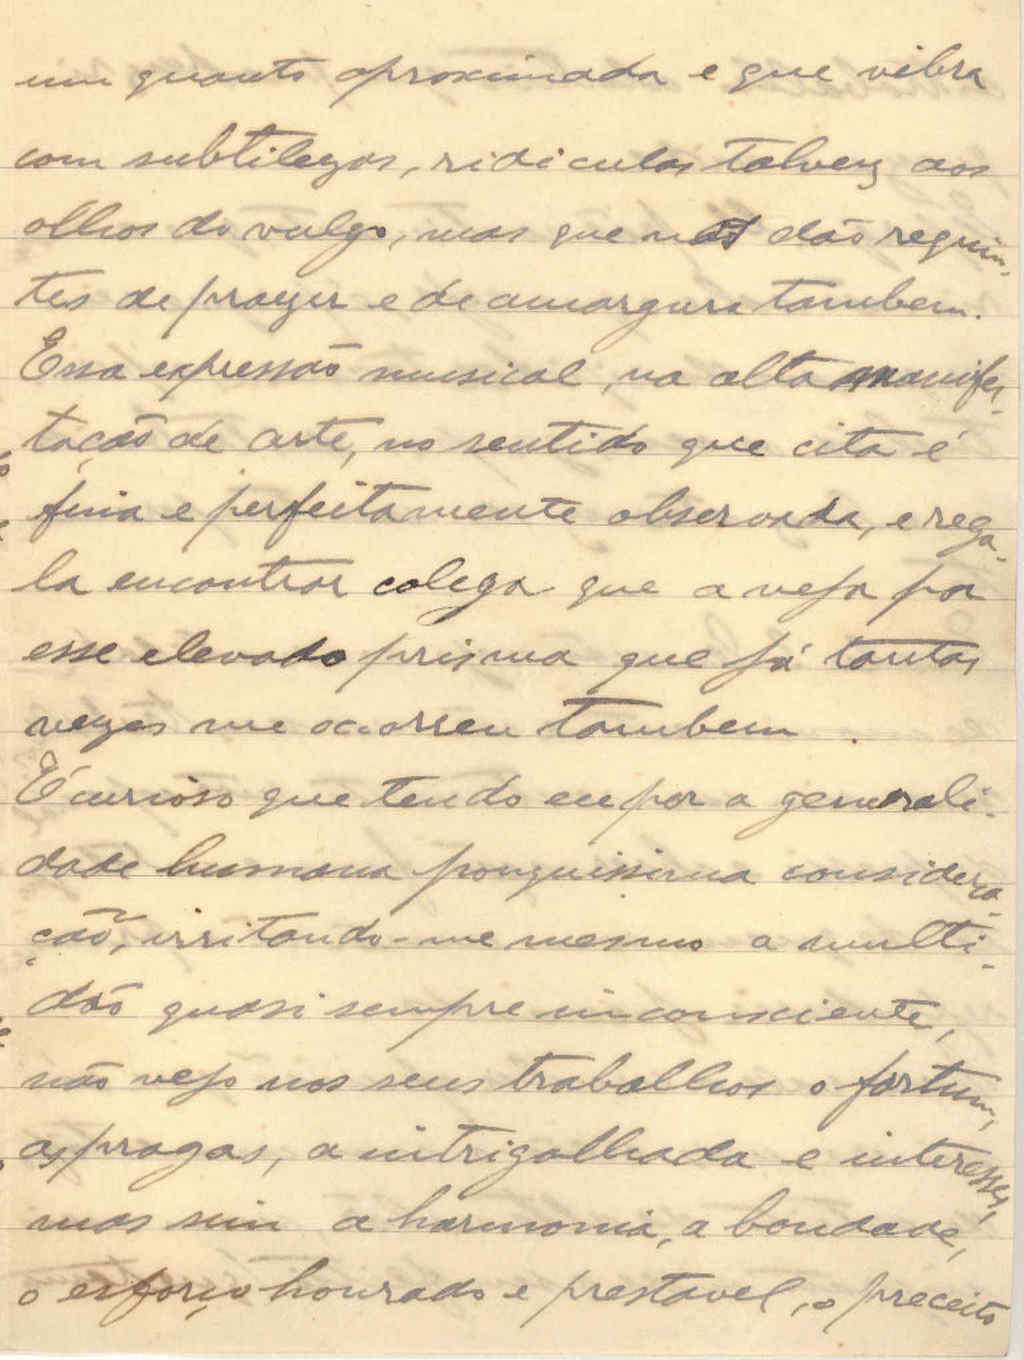 um quanto aproximada e que vibra
com subtilezas, ridiculas talvez aos
olhos do vulgo, mas que nos dão requin-
tes de prazer e de amargura tambem.
Essa expressão musical, na alta manifes-
tação de arte, no sentido que cita é
fina e perfeitamente observada, e rega-
la encontrar colega que a veja por
esse elevado prisma que já tantas
vezes me ocorreu tambem.
É curioso que tendo eu por a generali-
dade humana pouquissima considera-
ção, irritando-me mesmo a multi-
dão quasi sempre inconsciente,
não vejo nos seus trabalhos o fortum,
as pragas, a intrigalhada e interesses,
mas sim a harmonia, a bondade,
o esforço honrado e prestavel, o preceito